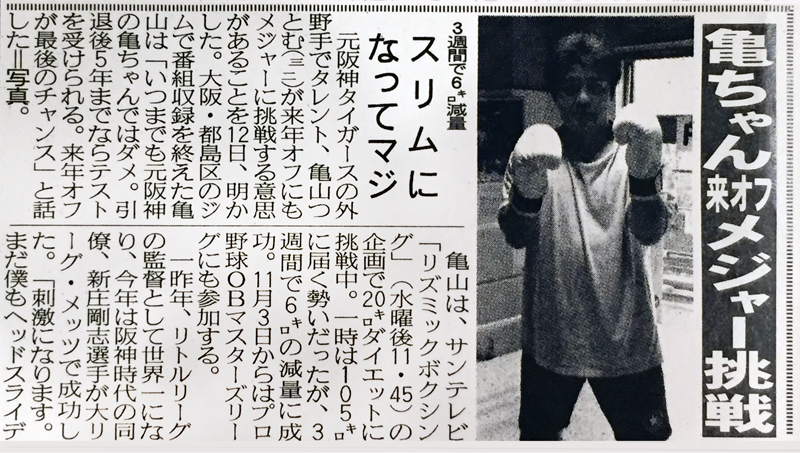 亀ちゃん来オフメジャー挑戦
3週間で6㌔減量
スリムに
なってマジ
元阪神タイガースの外
野手でタレント、亀山つ
とむ(三二)が来年オフにも
メジャーに挑戦する意思
があることを12日、明か
した。大阪・都島区のジ
ムで番組収録を終えた亀
山は「いつまでも元阪神
の亀ちゃんではダメ。引
退後5年までならテスト
を受けられる。来年オフ
が最後のチャンス」と話
した=写真。
亀山は、サンテレビ
「リズミックボクシン
グ」(水曜後11・45)の
企画で20㌔ダイエットに
挑戦中。一時は105㌔
に届く勢いだったが、3
週間で6㌔の減量に成
功。11月3日からはプロ
野球OBマスターズリー
グにも参加する。
一昨年、リトルリーグ
の監督として世界一にな
り、今年は阪神時代の同
僚、新庄剛志選手が大リ
ーグ・メッツで成功し
た。「刺激になります。
まだ僕もヘッドスライデ